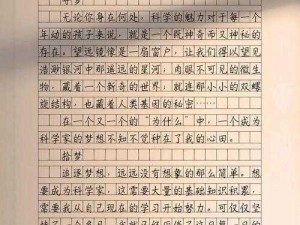 寻梦
无论你身在何处，科学的魅力对于每一个
年幼的孩子来说，就是一个既神奇而又神秘的
存在。望远镜像是一扇窗户，让我们得以望见
浩渺银河中那遥远的星河；肉眼不可见的微生
物，藏着一个新奇的世界；就连那小小的双螺
旋结构，也藏着人类基因的秘密……
在一个又一个的“为什么”中，一个成为
科学家的梦想不知不觉种在了我的心田。
拾梦
追梦，远远没有想象的那么简单。想
要成为科学家，这需要大量的基础知识积累，
需要我从自己现在的学习开始努力。可仅仅坚